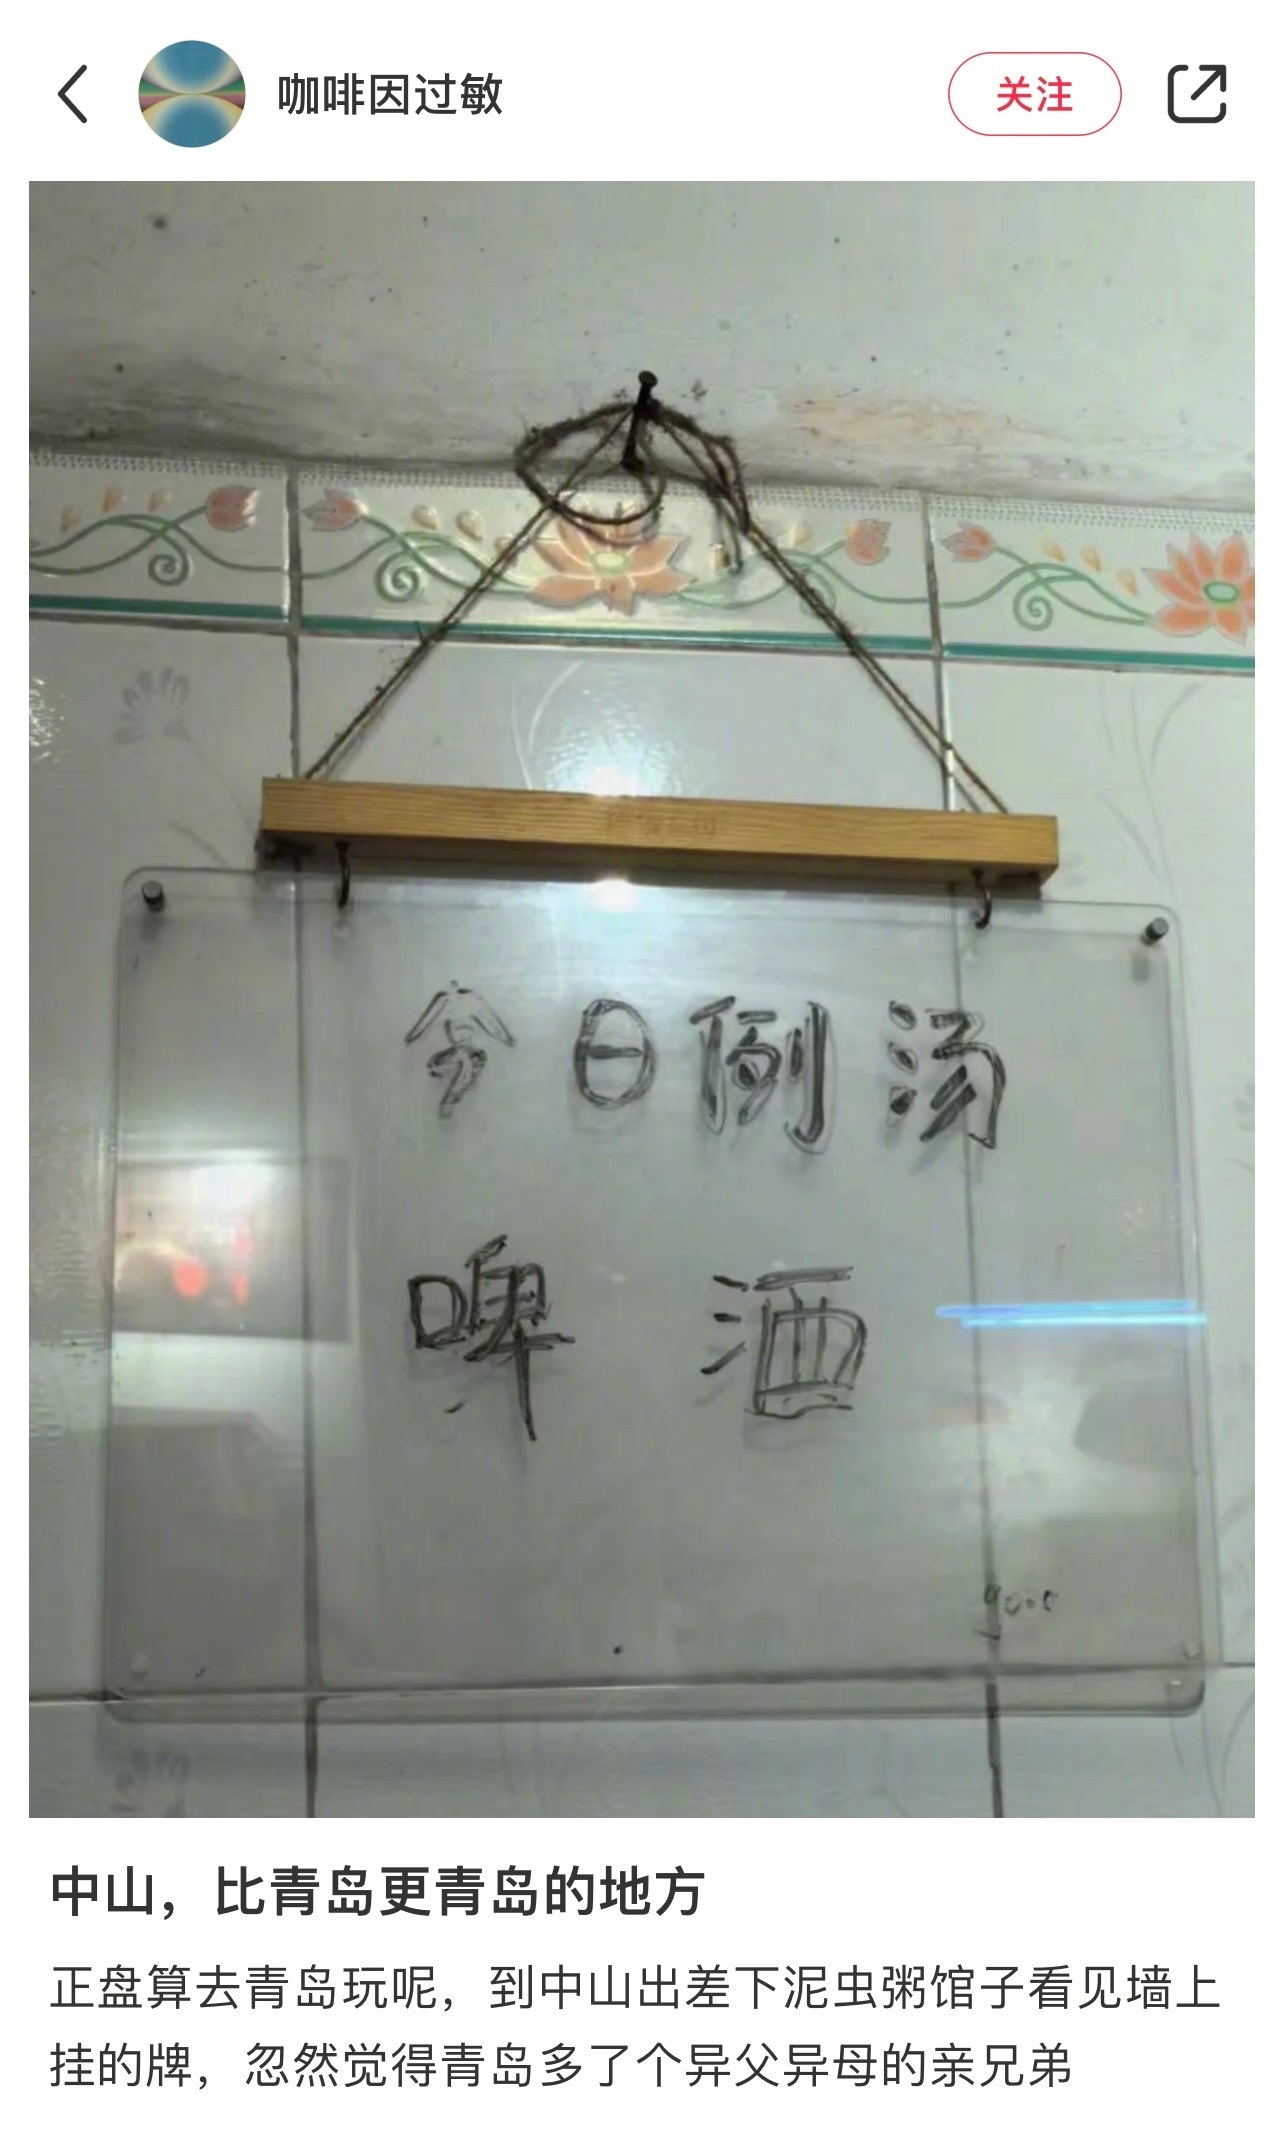 咖啡因过敏
关注
今日例汤
啤酒
中山，比青岛更青岛的地方
正盘算去青岛玩呢，到中山出差下泥虫粥馆子看见墙上
挂的牌，忽然觉得青岛多了个异父异母的亲兄弟